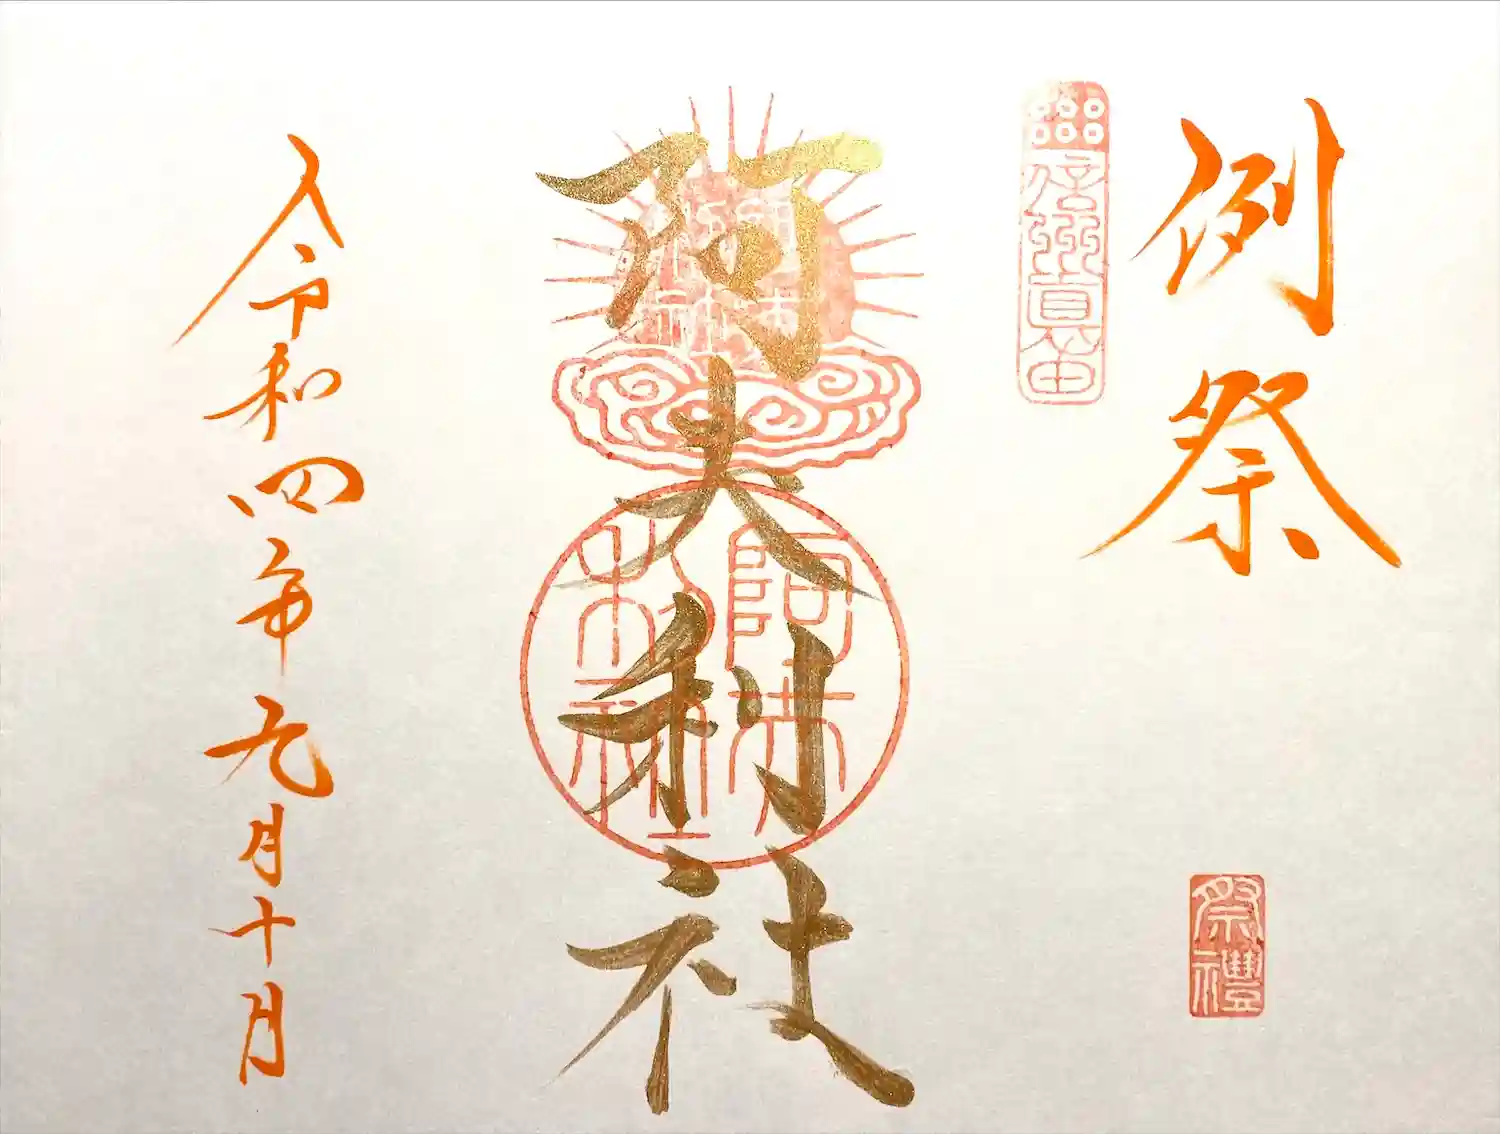 例祭
信州真田
祭禮
阿夫利社
阿夫利社
令和四年九月十日